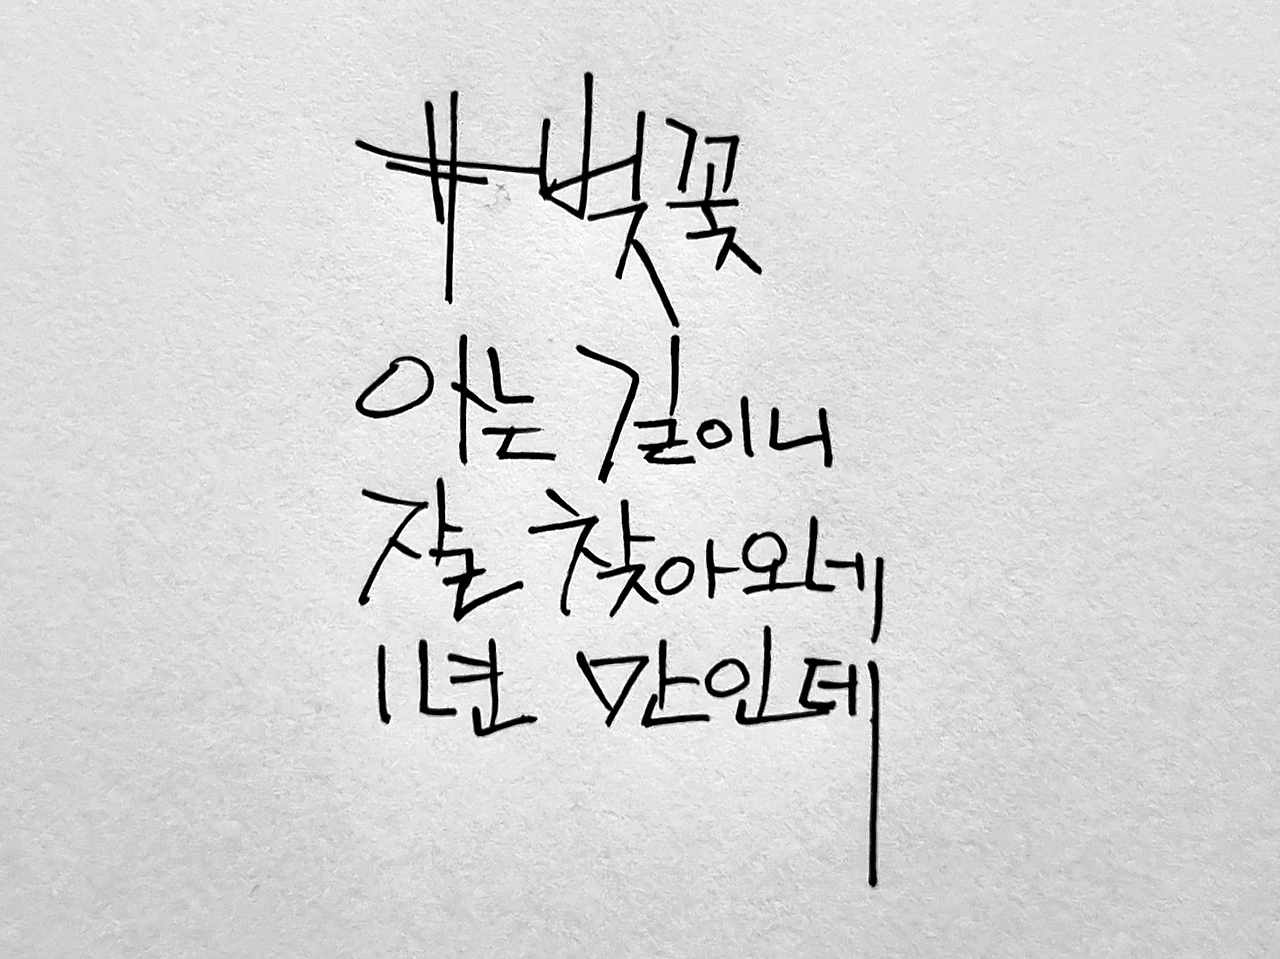 #벚꽃
아는 길이니
잘 찾아오네
1년 만인데